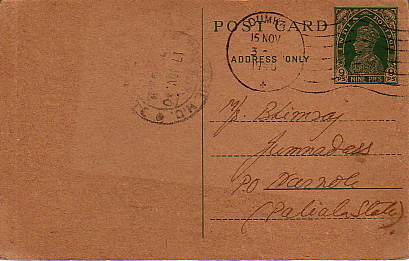 POST CARD
ADDRESS ONLY
15 NOV
INDIA POSTAGE
NINE PIES
M/s. Bhimraj
Jumnadass
PO Narnole
(Patiala State)